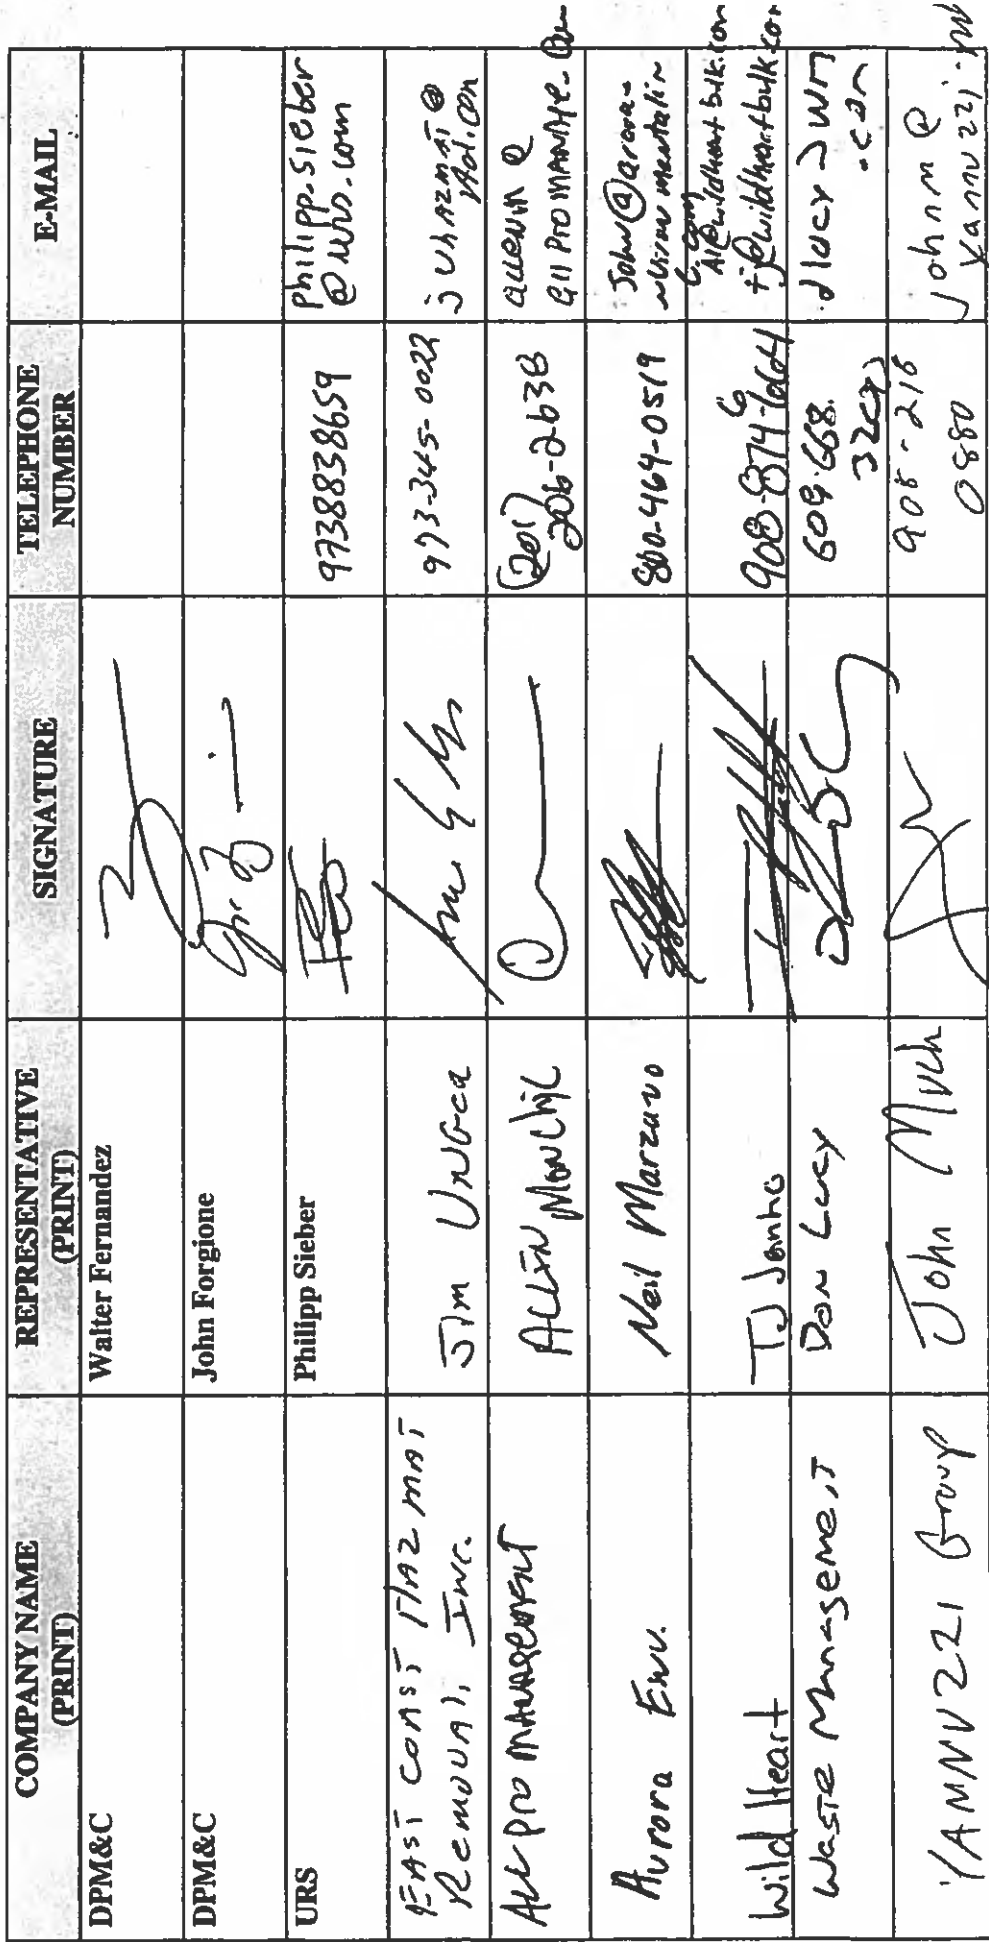 COMPANY NAME
(PRINT)
REPRESENTATIVE
(PRINT)
SIGNATURE
TELEPHONE
NUMBER
E-MAIL
DPM&C
Walter Fernandez
DPM&C
John Forgione
URS
Philipp Sieber
9738838659
philipp.sieber
@urs.com
EAST COAST HAZ MAT
Removal, Inc.
Jim
973-345-0022
@
Aol.com
ALL Pro MANAGEMENT
ALLEN
(201)
206-2638
allenm@
allpromanage.
Aurora Env.
Neil Marzano
800-464-0519
John@
Wild Heart
TJ
908-874-
Al@wildheartbulk.com
tj@wildheartbulk.com
Waste Management
Don Lucy
609.668.
dlucy2wm
.com
YANNU221 Group
John Much
908-216
0880
Johnm@
Yannu221.